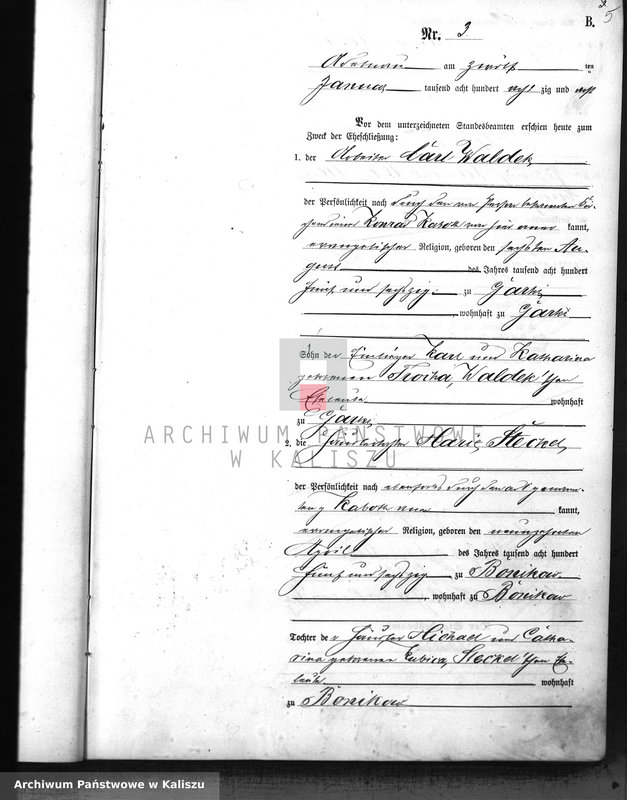 B.
Nr. 3
Adelnau am zwölf ten
Januar tausend acht hundert acht zig und acht
Vor dem unterzeichneten Standesbeamten erschien heute zum
Zweck der Eheschließung:
1. der Arbeiter Carl Waldek
der Persönlichkeit nach durch den von Person bekannten
Konrad kannt,
evangelischer Religion, geboren den sechsten Au-
gust des Jahres tausend acht hundert
fünf und sechszig zu Garki
, wohnhaft zu Garki
Sohn der Einlieger Karl und Katharina
geborenen Trocha, Waldek'schen
Eheleute wohnhaft
zu Garki
2. die Marie Steckel
der Persönlichkeit nach ebenfalls durch den
kannt,
evangelischer Religion, geboren den neunzehnten
April des Jahres tausend acht hundert
fünf und sechszig zu Bonikow
, wohnhaft zu Bonikow
Tochter der Häusler Michael und Catha-
rina geborenen Kubica, Steckel'schen Ehe-
leute wohnhaft
zu Bonikow
ARCHIWUM PAŃSTWOWE
W KALISZU
Archiwum Państwowe w Kaliszu